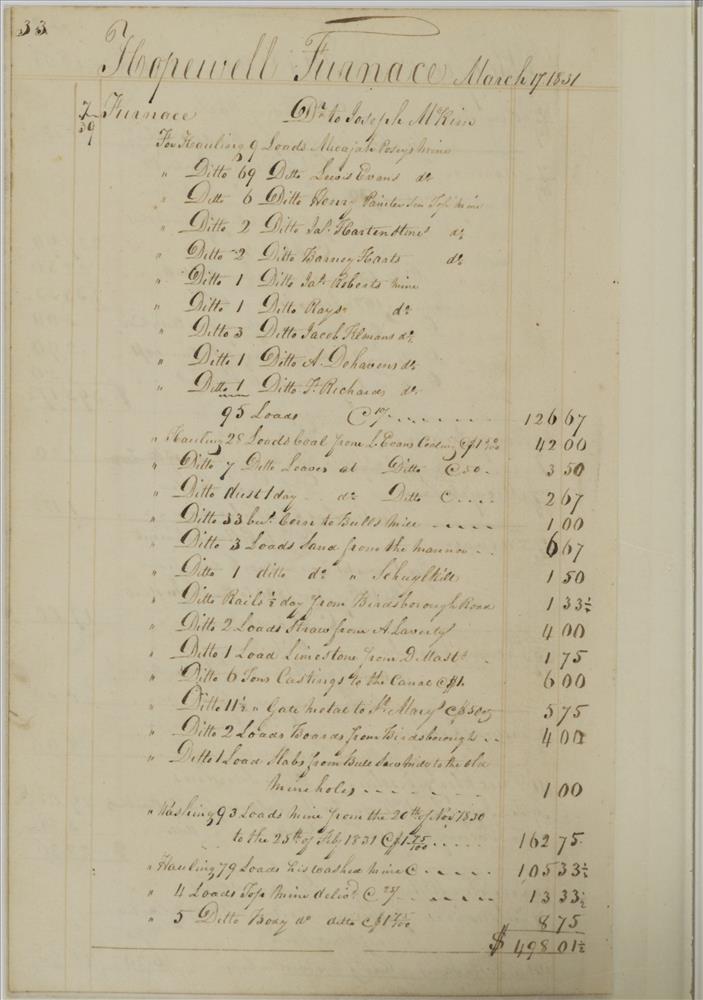 33
Hopewell Furnace March 17 1831
7 Furnace Dr. to Joseph McKim
39
1
For Hauling 9 Loads Micajah Poseys Mine
" Ditto 69 Ditto Lewis Evans do
" Ditto 6 Ditto Henry Painter Top Mine
" Ditto 2 Ditto Jas. Hartenstines do
" Ditto 2 Ditto Barney Harts do
" Ditto 1 Ditto Jas. Roberts Mine
" Ditto 1 Ditto Rays do
" Ditto 3 Ditto Jacob do
" Ditto 1 Ditto A. Dehavens do
" Ditto 1 Ditto F. Richards do
95 Loads @ 126 67
" Hauling 28 Loads Coal from L. Evans Coaling @ $1 50/100 42 00
" Ditto 7 Ditto Leaves at Ditto @ 50 3 50
" Ditto dust 1 day do Ditto @ 2 67
" Ditto 33 bus. Corn to Bulls Mill 1 00
" Ditto 3 Loads Sand from the Mannor 6 67
" Ditto 1 ditto do " Schuylkill 1 50
" Ditto Rails ½ day from Birdsborough Road 1 33½
" Ditto 2 Loads Straw from A Laverty 4 00
" Ditto 1 Load Limestone from D. Mast 1 75
" Ditto 6 Tons Castings to the Canal @ $1. 6 00
" Ditto 11½ " Gate Metal to St. Marys @ 50 5 75
" Ditto 2 Loads Boards from Birdsborough 4 00
" Ditto 1 Load Slabs from Bulls Saw Mill to the old
Mine holes 1 00
" Washing 93 Loads Mine from the 20th of Nov. 1830
to the 25th of Feby 1831 @ $1 75/100 162 75
" Hauling 79 Loads his washed Mine @ 105 33½
" 4 Loads Top Mine delivd. @ 13 33½
" 5 Ditto Boxy do ditto @ $1 75/100 8 75
$ 498 01½